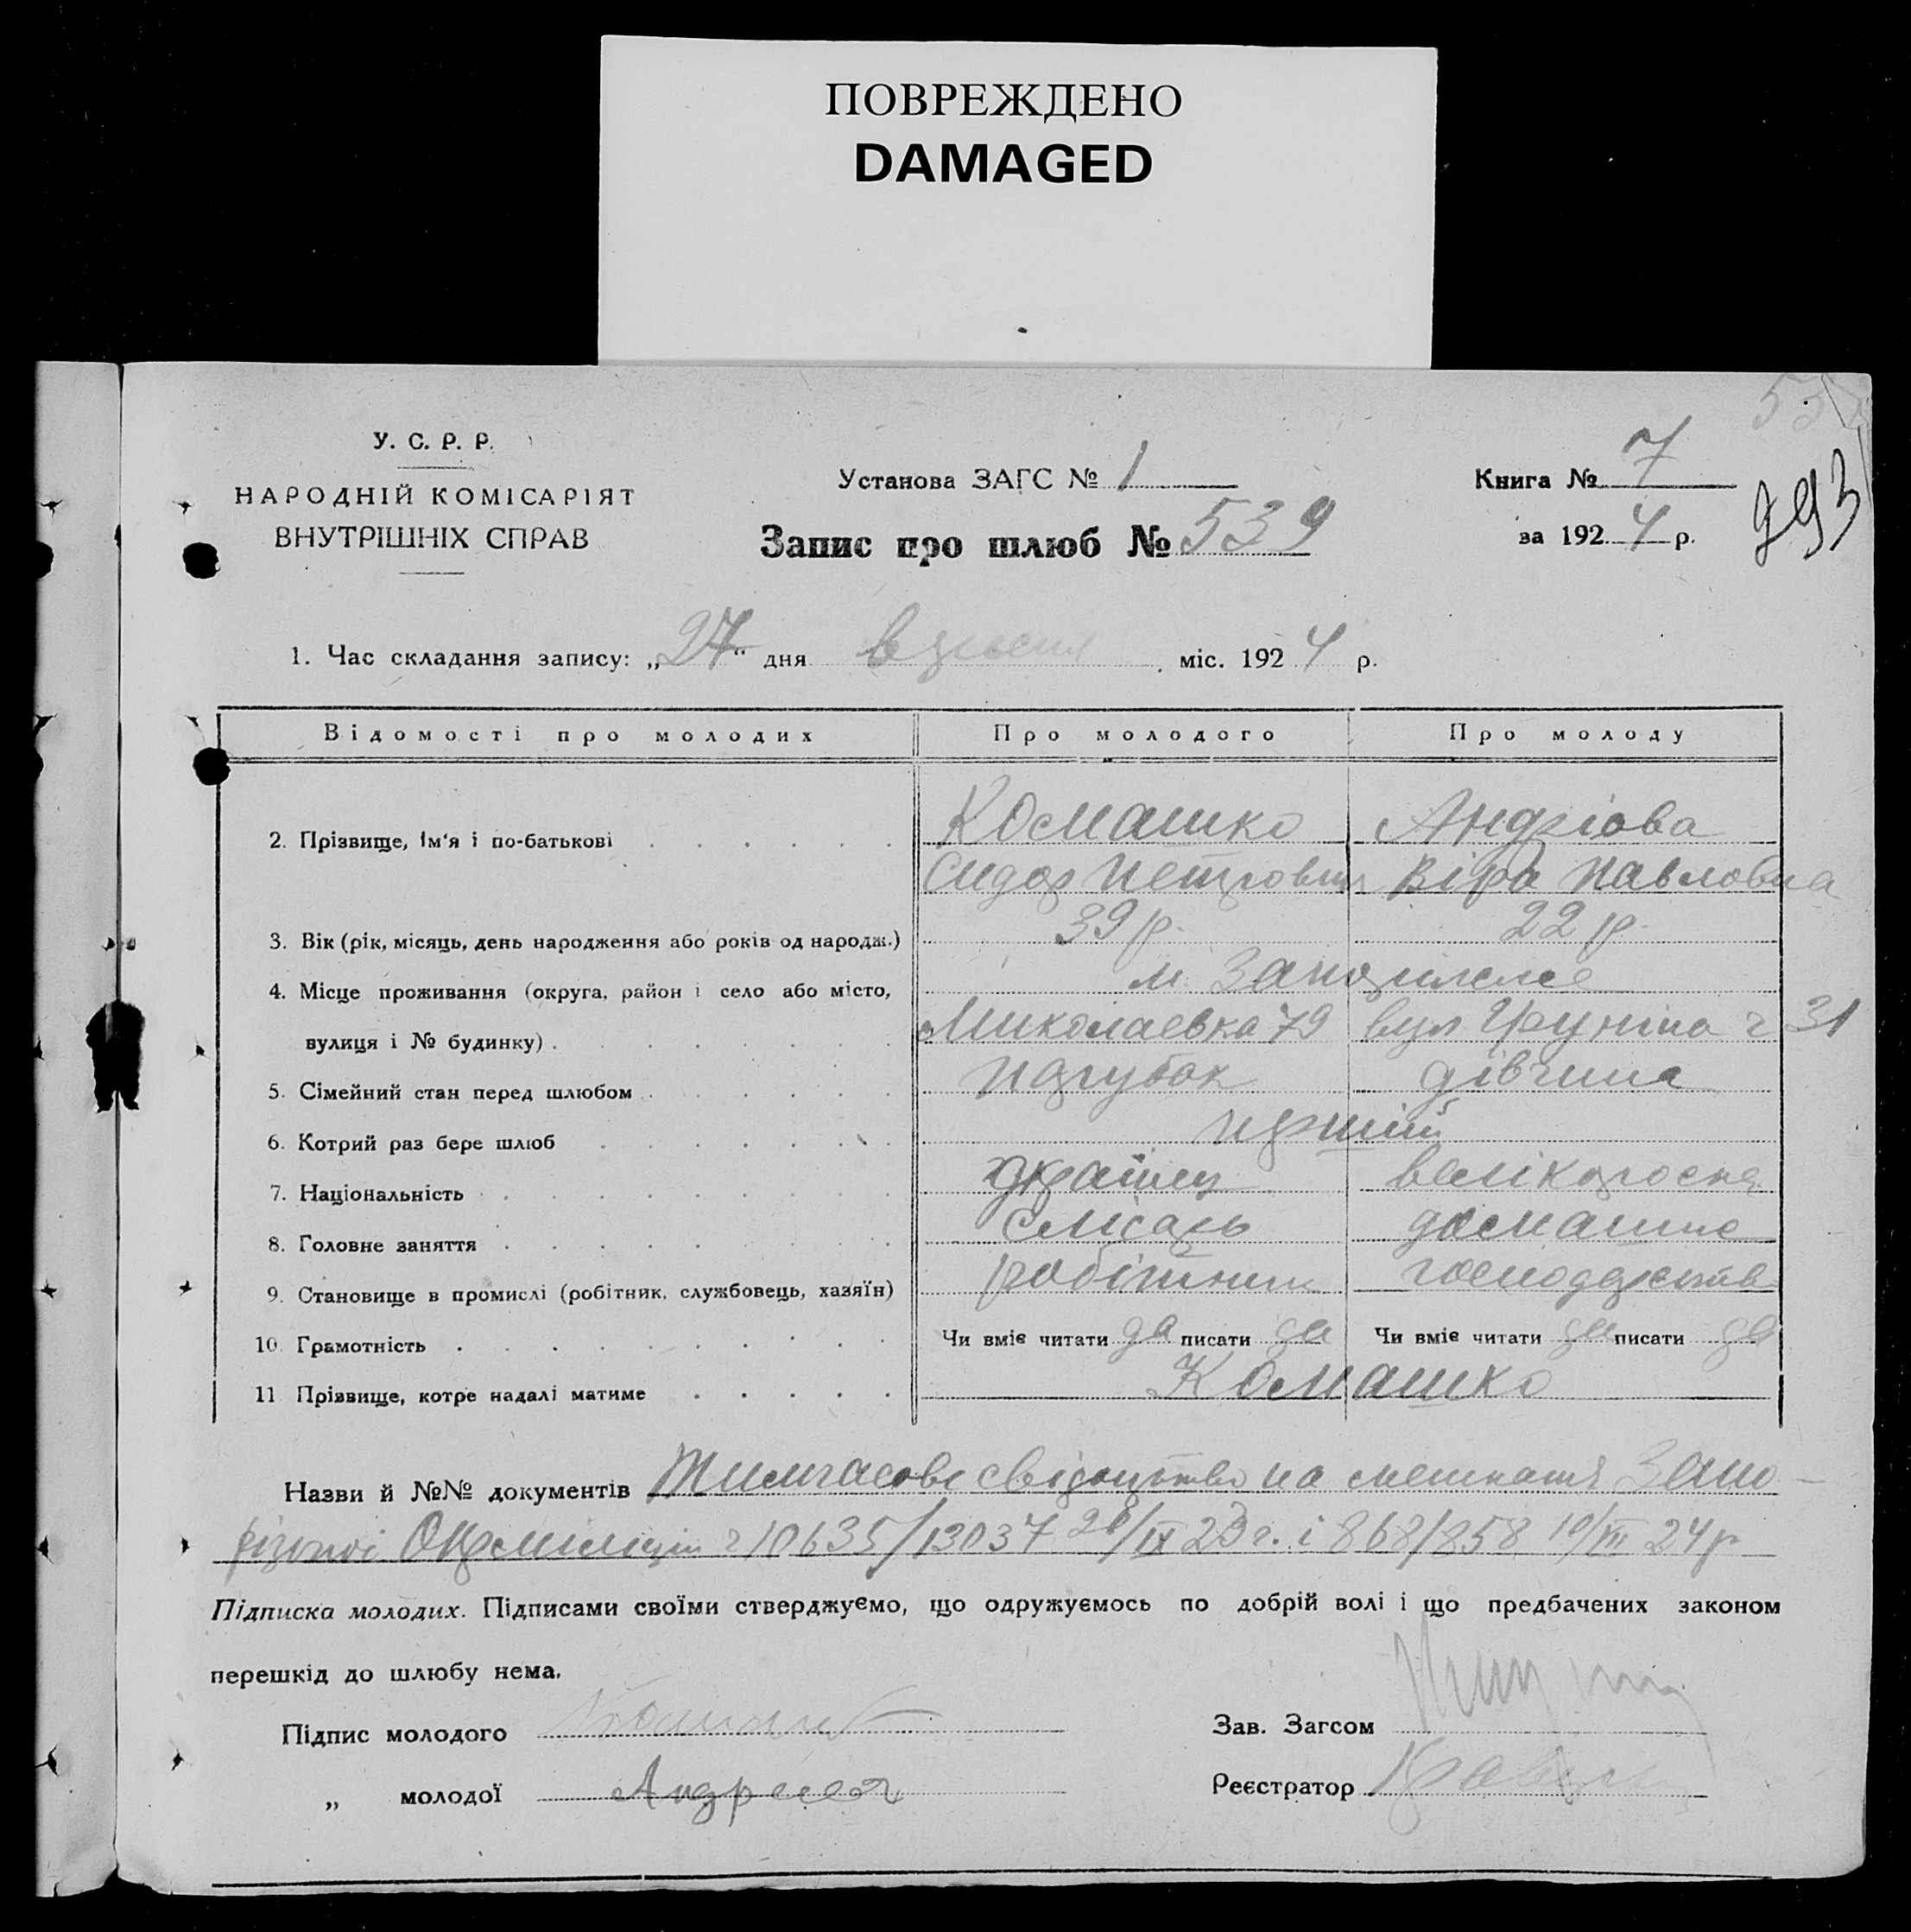 ПОВРЕЖДЕНО
DAMAGED
У. С. Р. Р.
НАРОДНІЙ КОМІСАРІЯТ
ВНУТРІШНІХ СПРАВ
Установа ЗАГС № 1
Запис про шлюб № 539
Книга № 7
за 1924 р.
793
1. Час складання запису: „27“ дня вересня міс. 1924 р.
Відомості про молодих
Про молодого
Про молоду
2. Прізвище, Ім'я і по-батькові
Комашко
Андріова
Сидор Петрович
Віра Павловна
3. Вік (рік, місяць, день народження або років од народж.)
39 р.
22 р.
4. Місце проживання (округа, район і село або місто,
м. Запоріжжє
вулиця і № будинку)
Миколаевка 79
вул 31
5. Сімейний стан перед шлюбом
парубок
дівчина
6. Котрий раз бере шлюб
перший
7. Національність
україн.
великорос
8. Головне заняття
слюсарь
домашнє
9. Становище в промислі (робітник, службовець, хазяїн)
робітник
господарство
10. Грамотність
Чи вміє читати да писати да
Чи вміє читати да писати да
11. Прізвище, котре надалі матиме
Комашко
Назви й №№ документів Тимчасове свідоцтво на мешкання Запо-
різької Окрміліції ч 10635/13037 28/IX 23 г. і 868/858 19/VII 24 р
Підписка молодих. Підписами своїми стверджуємо, що одружуємось по добрій волі і що предбачених законом
перешкід до шлюбу нема.
Підпис молодого
Зав. Загсом
„ молодої
Реєстратор